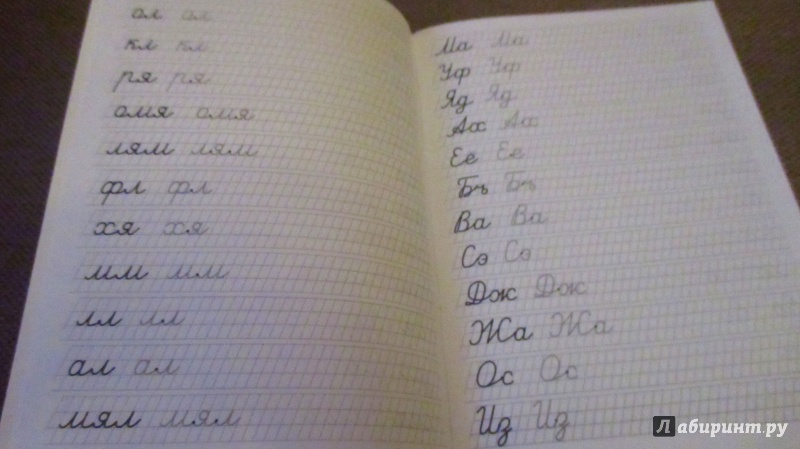 ол ол
кл кл
ря ря
омя омя
лям лям
фл фл
хя хя
мм мм
лл лл
ал ал
мял мял
Ма Ма
Уф Уф
Яд Яд
Ах Ах
Её Её
Бъ Бъ
Ва Ва
Сэ Сэ
Дж Дж
Жа Жа
Ос Ос
Из Из
Лабиринт.ру